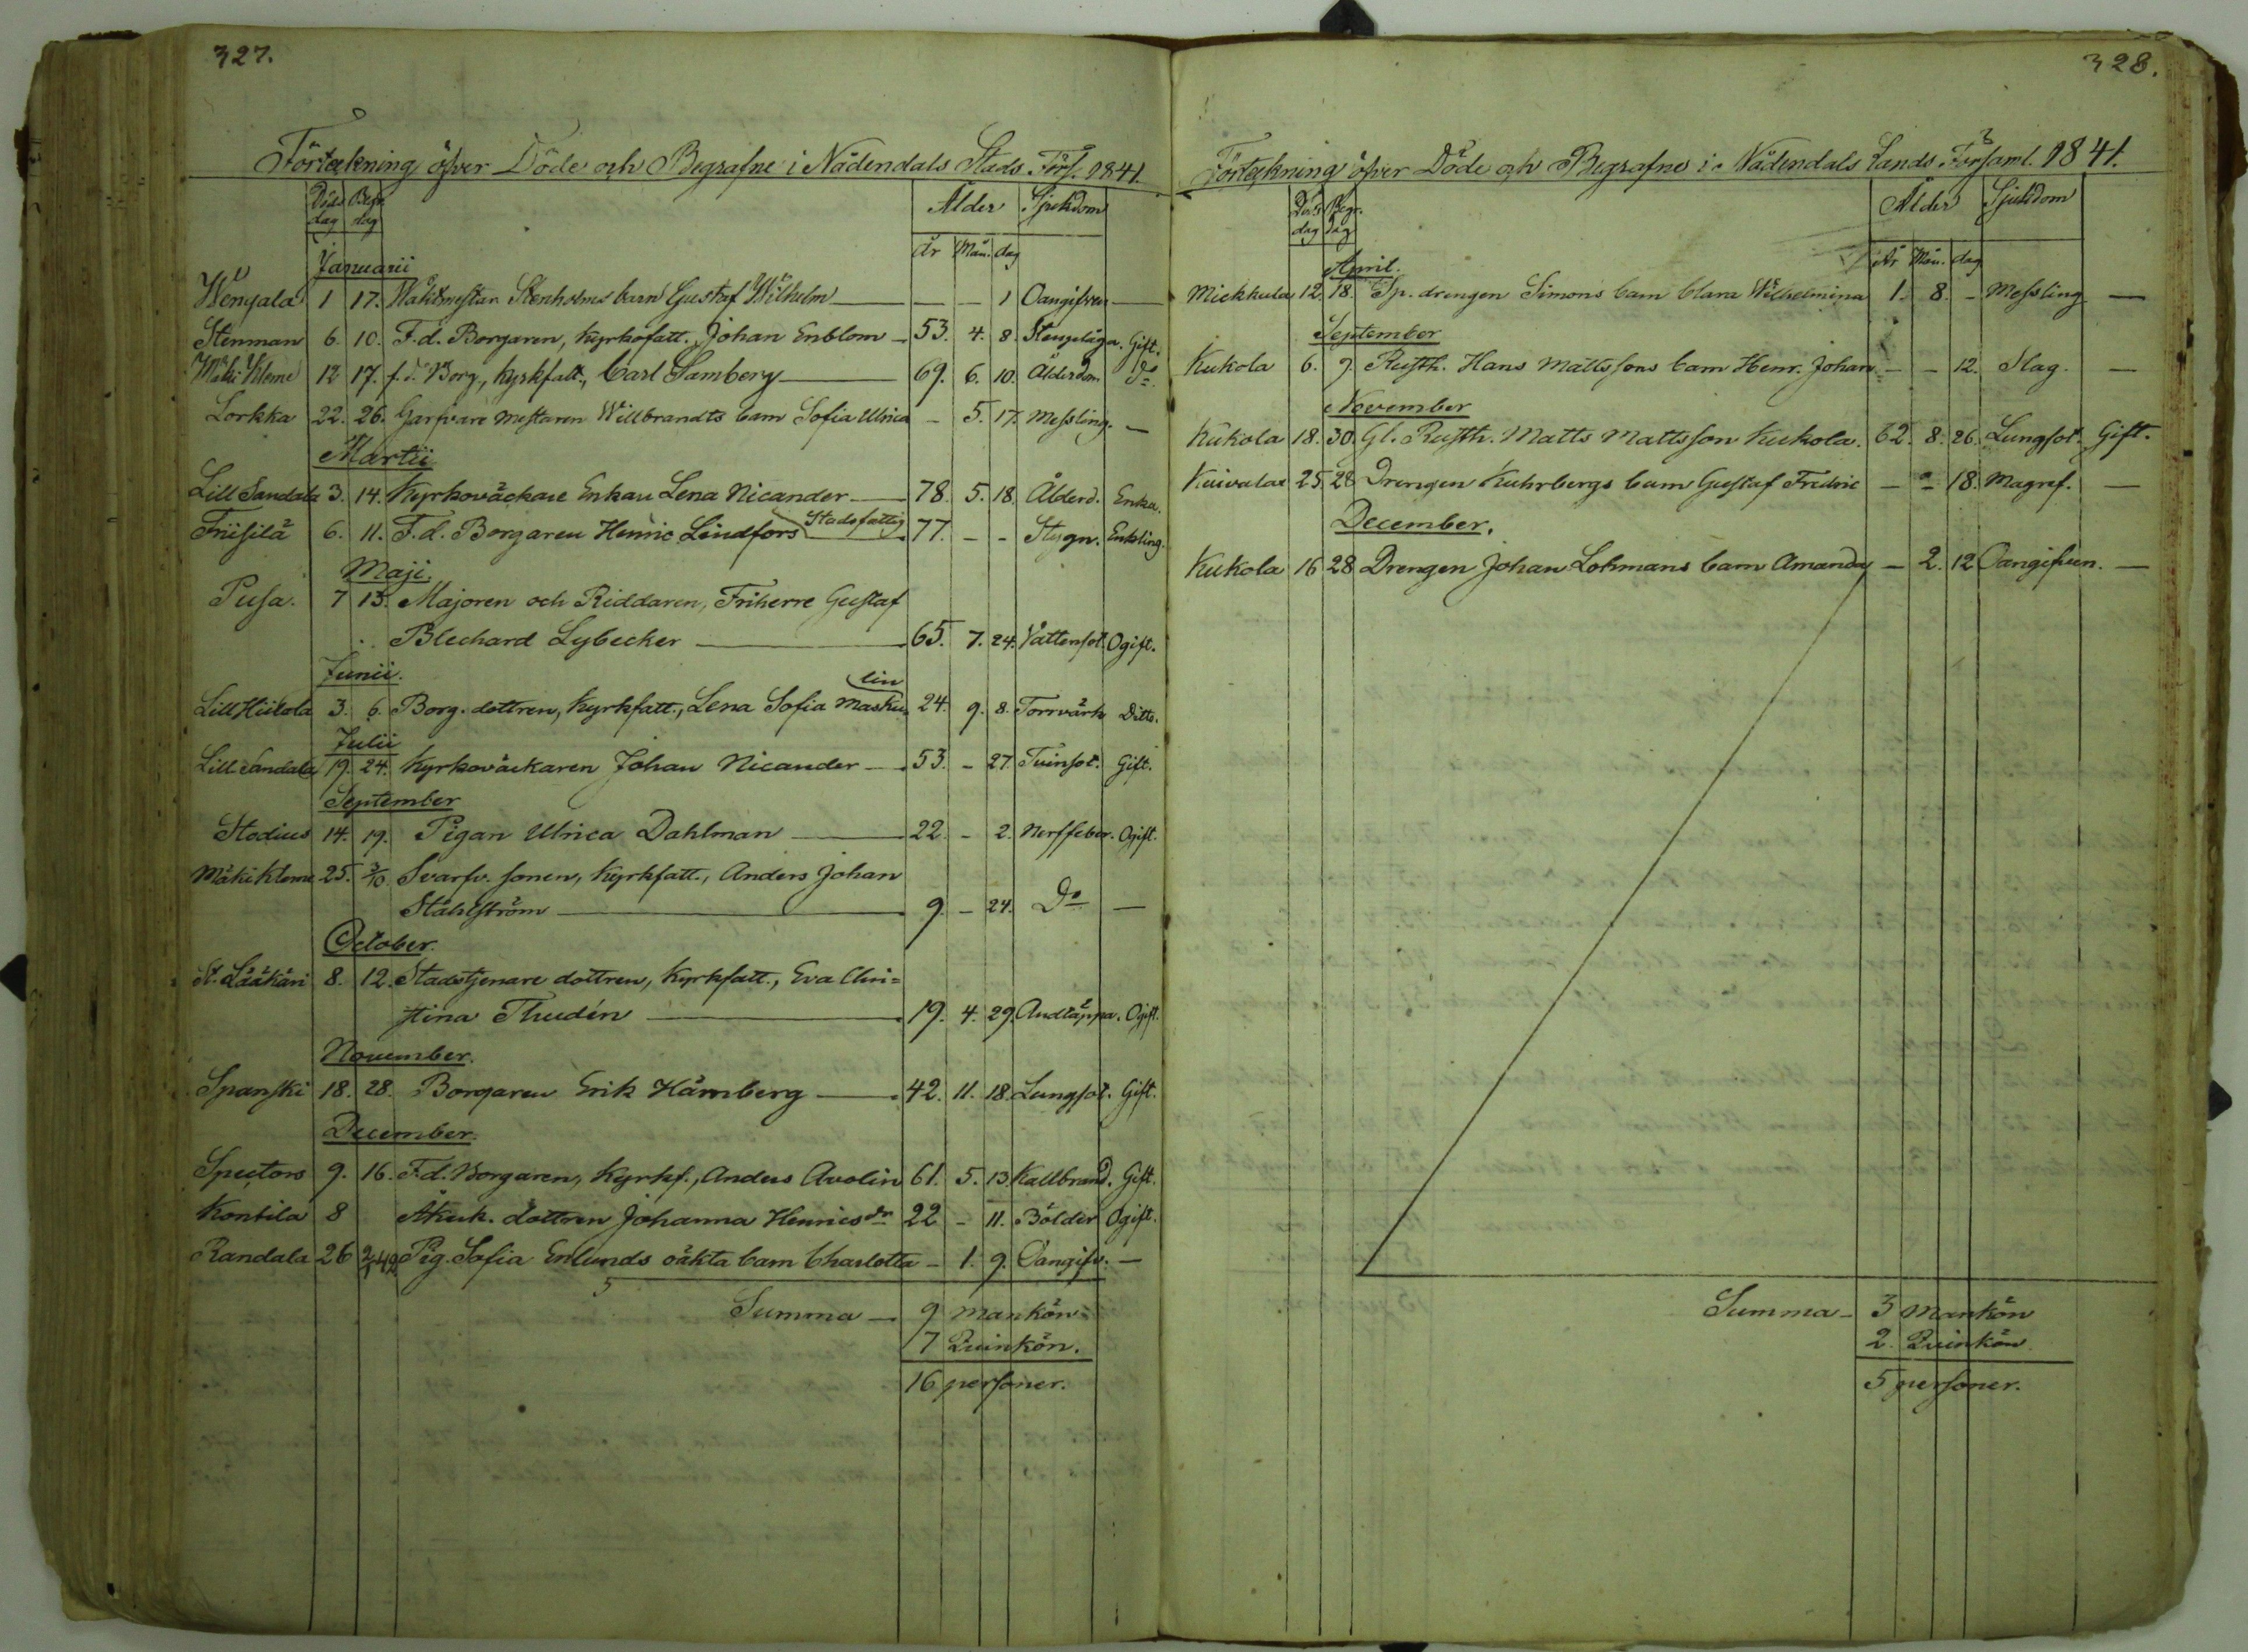 327.
Förtekning öfver Döde och Begrafne i Nådendals Stads Förs. 1841.
Döds dag Begr. dag Ålder Sjukdom
år Mån. dag
Januarii
Wengala 1 17. Waktmestar Stenholms barn Gustaf Wilhelm — — — 1 Oangifven —
Stenman 6. 10. F.d. Borgaren, Kyrkofatt. Johan Enblom — 53. 4. 8. Stenplåga. Gift.
Mäki Kleme 12 17. f.d. Borg., Kyrkfatt., Carl Samberg — 69. 6. 10. Ålderdom D:o
Lorkka 22. 26. Garfvare mestaren Willbrandts barn Sofia Ulrica — 5. 17. Messling. —
Martii
Lill Sandala 3. 14. Kyrkoväckare Enkan Lena Nicander — 78. 5. 18. Ålderd. Enka.
Friisilä 6. 11. F.d. Borgaren Henric Lindfors Stadsfattig 77. - - Stygn. Enkling.
Maji.
Pusa. 7 13. Majoren och Riddaren, Friherre Gustaf
Blechard Lybecker — 65. 7. 24. Vattensot. Ogift.
Junii.
lin
Lill Hiikola 3. 6. Borg. dottren, Kyrkfatt., Lena Sofia Masku 24. 9. 8. Torrvärk Ditto.
Julii
Lill Sandala 19. 24. Kyrkoväckaren Johan Nicander — 53. - 27. Tvinsot. Gift.
September
Stodius 14. 19. Pigan Ulrica Dahlman — 22. - 2. Nerffeber. Ogift.
Mäki Kleme 25. 3/10. Svarfv. sonen, Kyrkfatt., Anders Johan
Ståhlström — 9. - 24. D:o —
October.
St. Lääkäri 8. 12. Stadstjenare dottren, Kyrkfatt., Eva Chri=
stina Thudén — 19. 4. 29. Andtäppa. Ogift.
November.
Spanski 18. 28. Borgaren Erik Hämberg — 42. 11. 18. Lungsot. Gift.
December.
Spectors 9. 16. F.d. Borgaren, Kyrkf., Anders Avolin 61. 5. 13. Kallbrand. Gift.
Kontila 8 dottren Johanna Henricsdr 22 - 11. Bölder Ogift.
Randala 26 2/1 42 Pig. Sofia Enlunds oäkta barn Charlotta - 1. 9. Oangifv. —
Summa — 9 Mankön
7 Quinkön.
16 personer.
328.
Förtekning öfver Döde och Begrafne i Nådendals Lands Församl. 1841.
Döds dag Begr. dag Ålder Sjukdom
År Mån. dag
April.
Miekkula 12. 18. Sp. drengen Simons barn Clara Wilhelmina 1. 8. - Messling —
September
Kukola 6. 9. Rusth. Hans Mattssons barn Henr. Johan - - 12. Slag. —
November
Kukola 18. 30. Gl. Rusth. Matts Mattsson Kukola. 62. 8. 26. Lungsot. Gift.
Kuivalax 25 28 Drengen Kuhrbergs barn Gustaf Fredric — - 18. Magref. —
December.
Kukola 16 28 Drengen Johan Lohmans barn Amanda — 2. 12 Oangifven. —
Summa — 3 Mankön
2. Quinkön.
5 personer.